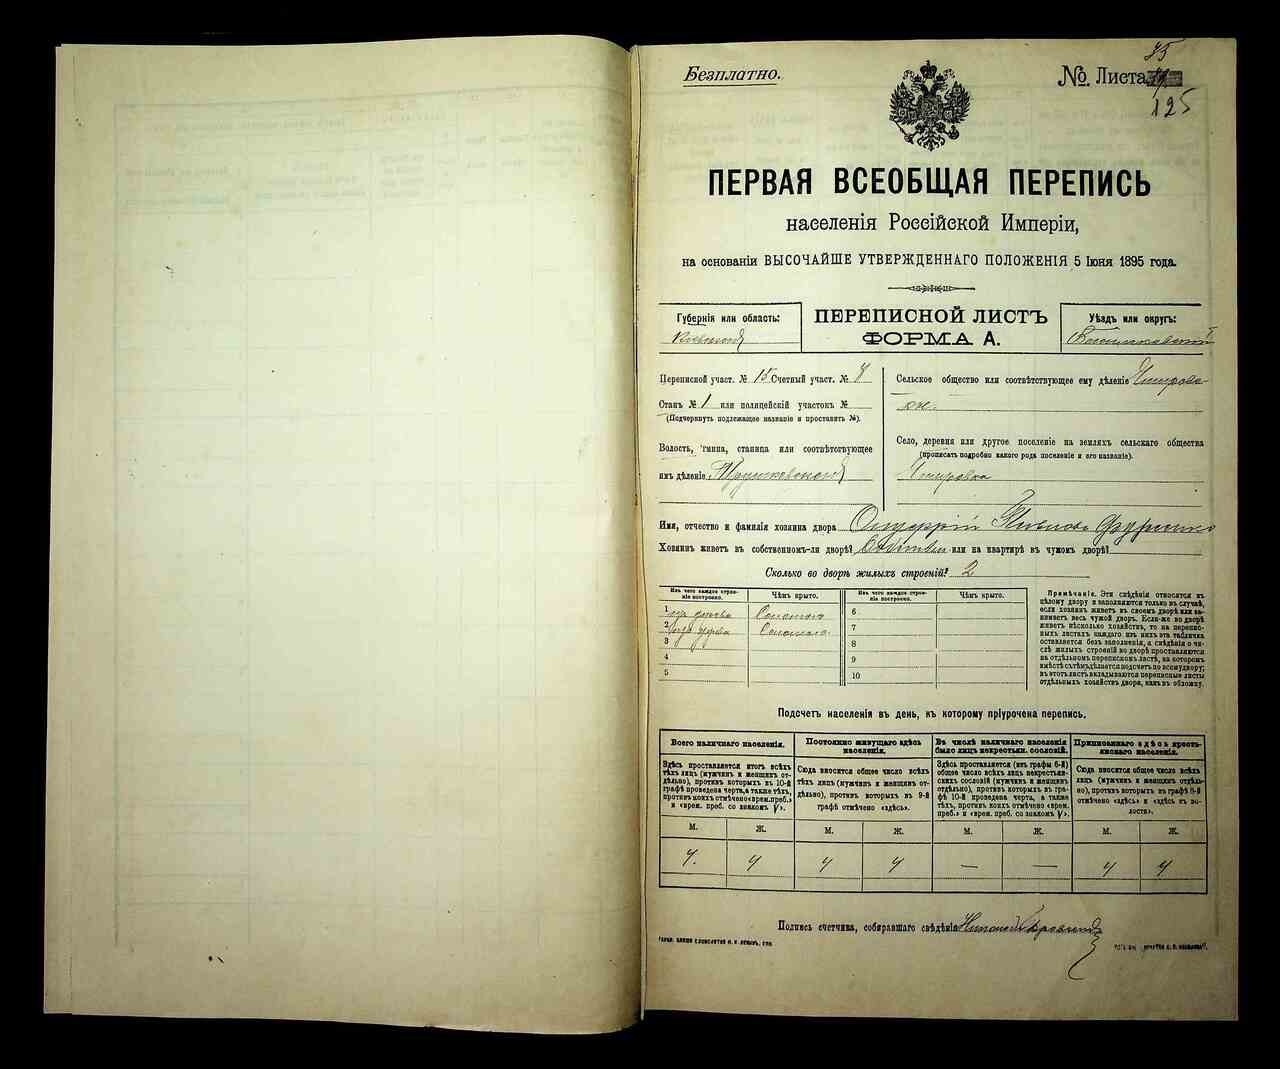 Безплатно.
№ Листа
125
ПЕРВАЯ ВСЕОБЩАЯ ПЕРЕПИСЬ
населенія Россійской Имперіи,
на основаніи ВЫСОЧАЙШЕ УТВЕРЖДЕННАГО ПОЛОЖЕНІЯ 5 Іюня 1895 года.
Губернія или область:
Кіевская
ПЕРЕПИСНОЙ ЛИСТЪ
ФОРМА А.
Уѣздъ или округъ:
Васильковскій
Переписной участ. № 15 Счетный участ. №
Станъ № 1 или полицейскій участокъ №
(Подчеркнуть подлежащее названіе и проставить №).
Волость, гмина, станица или соотвѣтствующее
имъ дѣленіе
Сельское общество или соотвѣтствующее ему дѣленіе
Село, деревня или другое поселеніе на земляхъ сельскаго общества
(прописать подробно какого рода поселеніе и его названіе).
Имя, отчество и фамилія хозяина двора
Хозяинъ живетъ въ собственномъ-ли дворѣ? или на квартирѣ въ чужомъ дворѣ?
Сколько во дворѣ жилыхъ строеній? 2
Изъ чего каждое строе-
ніе построено.
Чѣмъ крыто.
Изъ чего каждое строе-
ніе построено.
Чѣмъ крыто.
1 изъ дерева Соломою
2 изъ дерева Соломою
3
4
5
6
7
8
9
10
Примѣчаніе. Эти свѣдѣнія относятся къ
цѣлому двору и заполняются только въ случаѣ,
если хозяинъ живетъ въ своемъ дворѣ или за-
нимаетъ весь чужой дворъ. Если-же во дворѣ
живетъ нѣсколько хозяйствъ, то на перепис-
ныхъ листахъ каждаго изъ нихъ эта табличка
оставляется безъ заполненія, а свѣдѣнія о чи-
слѣ жилыхъ строеній во дворѣ проставляются
на отдѣльномъ переписномъ листѣ, на которомъ
вмѣстѣ съ тѣмъ дѣлается подсчетъ по всему двору;
въ этотъ листъ вкладываются переписные листы
отдѣльныхъ хозяйствъ двора, какъ въ обложку.
Подсчетъ населенія въ день, къ которому пріурочена перепись.
Всего наличнаго населенія.
Здѣсь проставляется итогъ всѣхъ
тѣхъ лицъ (мужчинъ и женщинъ от-
дѣльно), противъ которыхъ въ 10-й
графѣ проведена черта, а также тѣхъ,
противъ коихъ отмѣчено «врем. преб.»
и «врем. преб. со знакомъ V».
Постоянно живущаго здѣсь
населенія.
Сюда вносится общее число всѣхъ
тѣхъ лицъ (мужчинъ и женщинъ от-
дѣльно), противъ которыхъ въ 9-й
графѣ отмѣчено «здѣсь».
Въ числѣ наличнаго населенія
было лицъ некрестьян. сословій.
Здѣсь проставляется (изъ графы 6-й)
общее число всѣхъ лицъ некрестьян-
скихъ сословій (мужчинъ и женщинъ
отдѣльно), противъ которыхъ въ гра-
фѣ 10-й проведена черта, а также
тѣхъ, противъ коихъ отмѣчено «врем.
преб.» и «врем. преб. со знакомъ V».
Приписаннаго здѣсь кресть-
янскаго населенія.
Сюда вносится общее число всѣхъ
лицъ (мужчинъ и женщинъ отдѣль-
но), противъ которыхъ въ графѣ 8-й
отмѣчено «здѣсь» и «здѣсь въ во-
лости».
М. Ж. М. Ж. М. Ж. М. Ж.
4. 4 4 4 — — 4 4
Подпись счетчика, собиравшаго свѣдѣнія